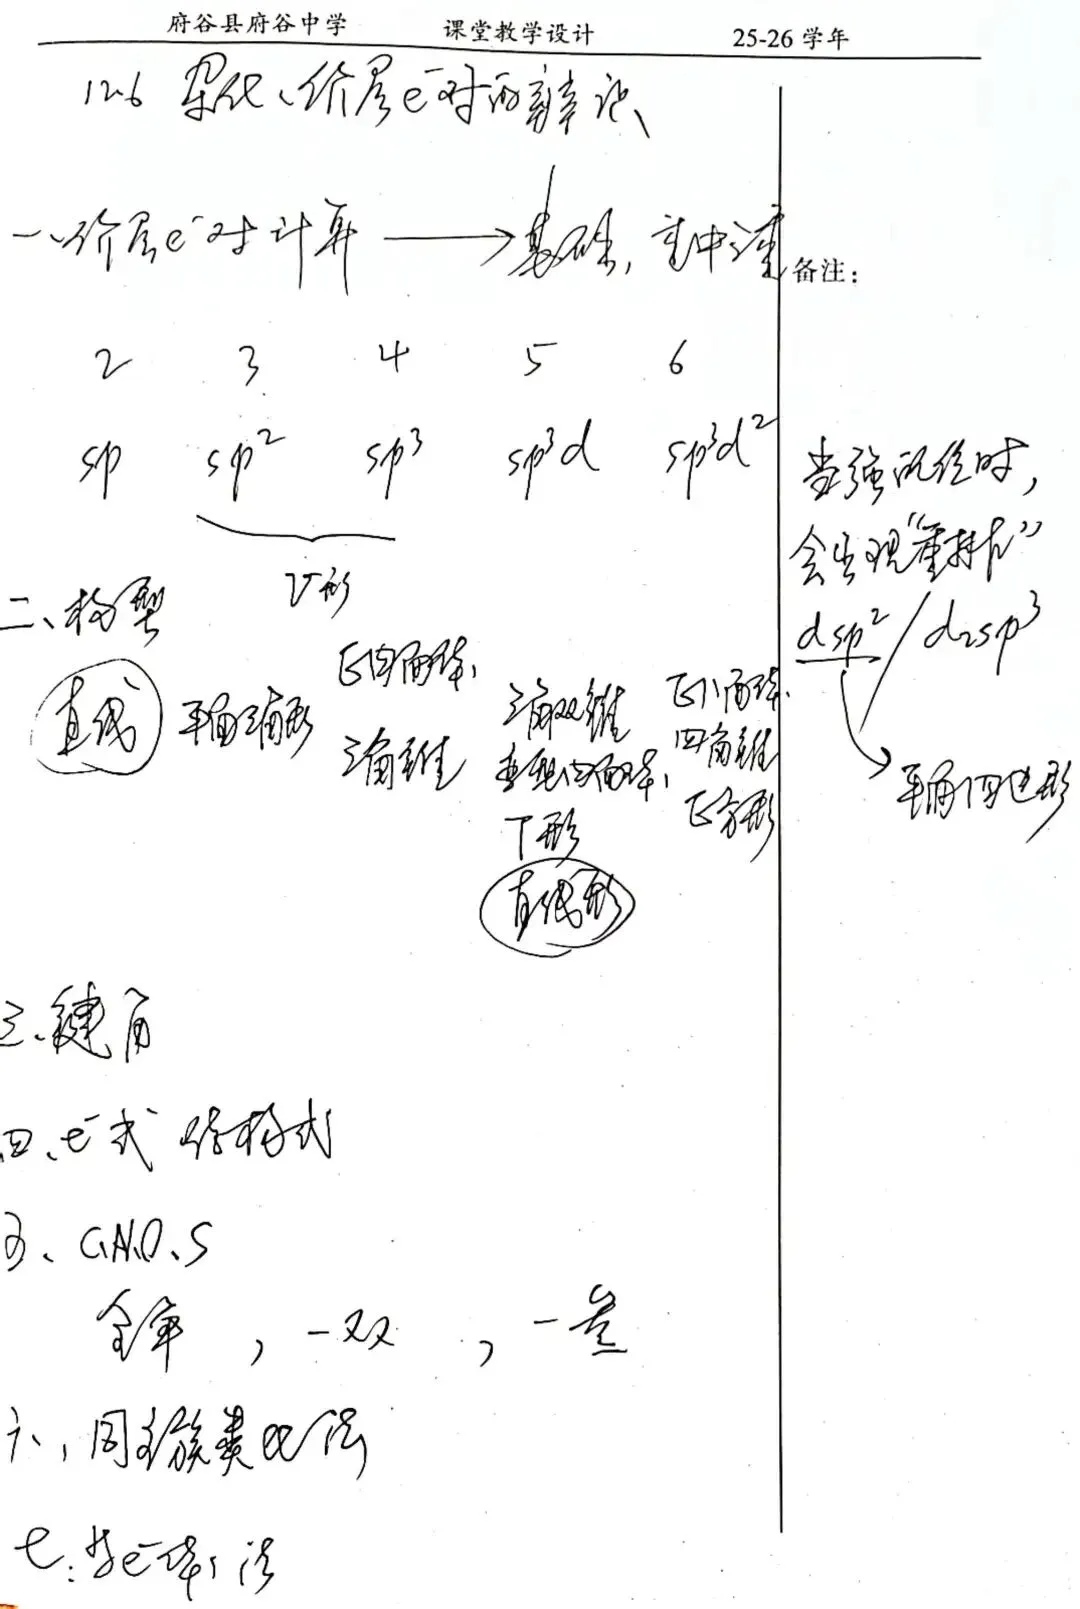 府谷县府谷中学 课堂教学设计 25-26学年
12.6 杂化、价层e⁻对的辨识
一、价层e⁻对计算 ⟶ 基础,重中之重
备注：
2 3 4 5 6
sp sp² sp³ sp³d sp³d²
V形
二、构型
直线 平面三角形
正四面体、
三角锥
三角双锥
变形四面体、
T形
直线形
正八面体、
四角锥
正方形
当强配位时,
会出现“重排”
dsp² / d₂sp³
平面四边形
三、键角
四、e⁻式 结构式
五、C、N、O、S
全单 , 一双 , 一叁
六、同主族类比法
七: 等e⁻体 法